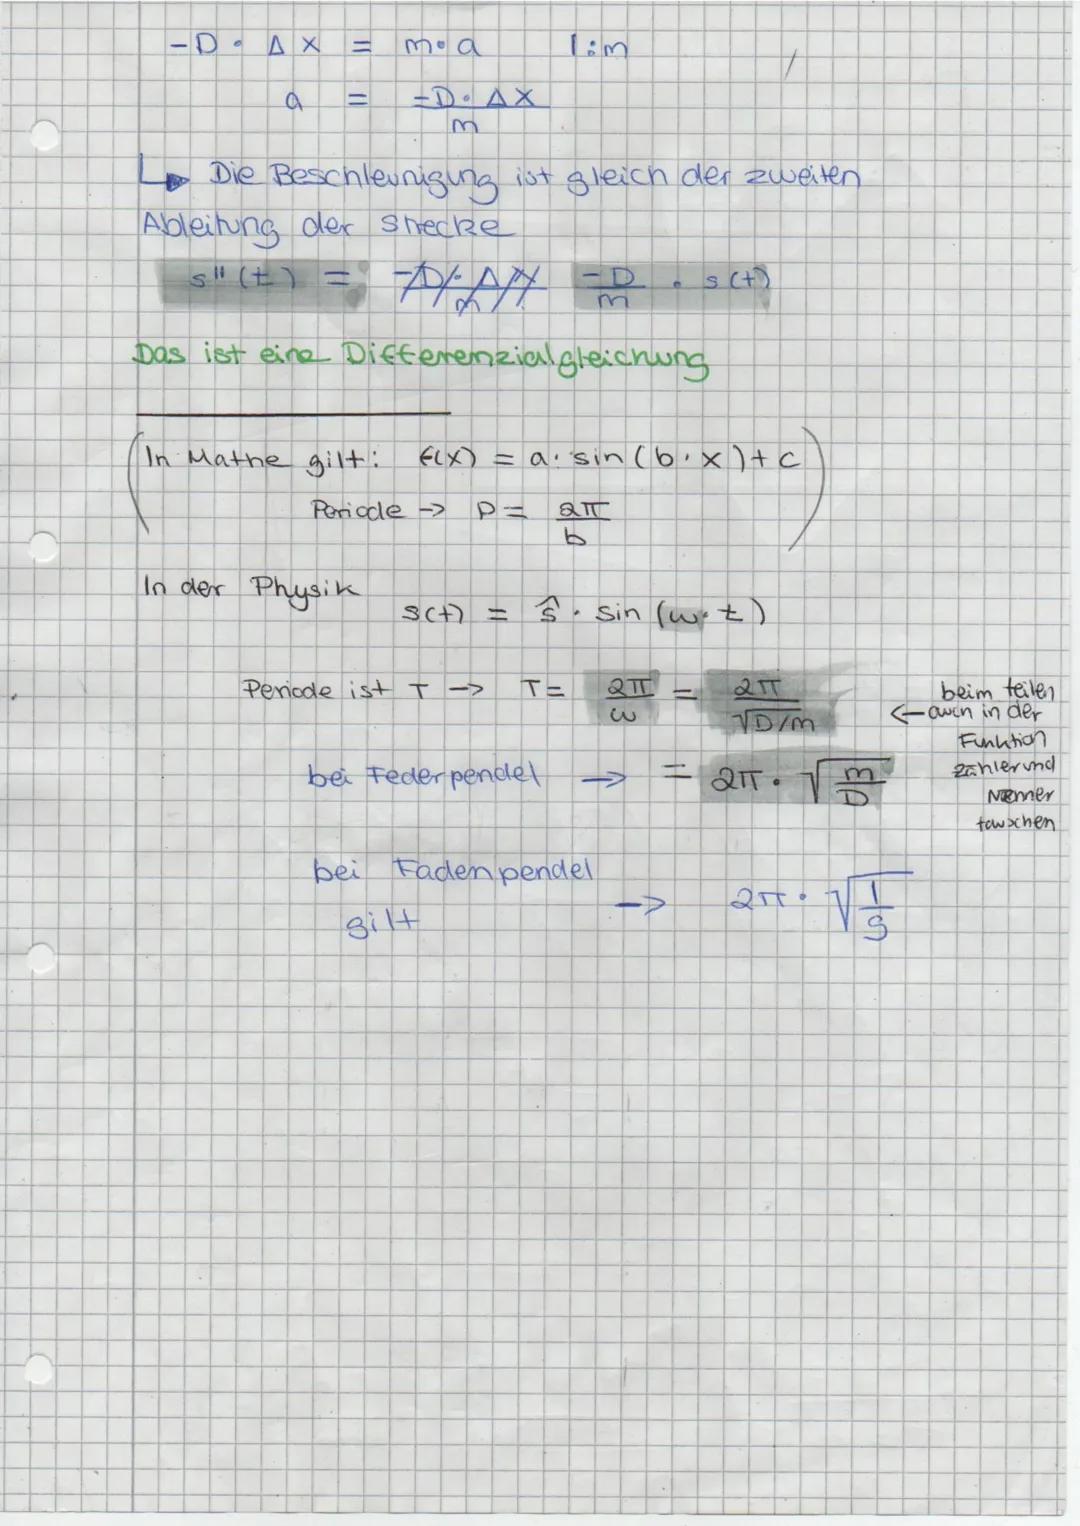 -D · Δx = m·a |:m
a = -D·Δx / m
↳ Die Beschleunigung ist gleich der zweiten
Ableitung der Strecke
s''(t) = -D·Δx / m -D/m · s(t)
Das ist eine Differenzialgleichung
(In Mathe gilt: f(x) = a·sin(b·x)+c
Periode → P = 2π/b)
In der Physik
s(t) = ŝ · sin(ω·t)
Periode ist T → T = 2π/ω = 2π/√D/m
beim teilen
← auch in der
Funktion
zähler und
Nenner
tauschen
bei Federpendel → = 2π · √(m/D)
bei Fadenpendel
gilt → 2π · √(l/g)